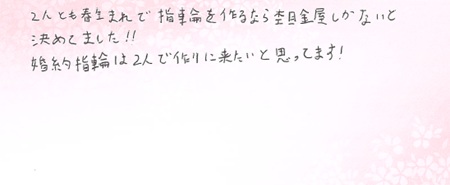 2人とも春生まれで指輪を作るなら杢目金屋しかないと
決めてました!!
婚約指輪は2人で作りに来たいと思ってます!